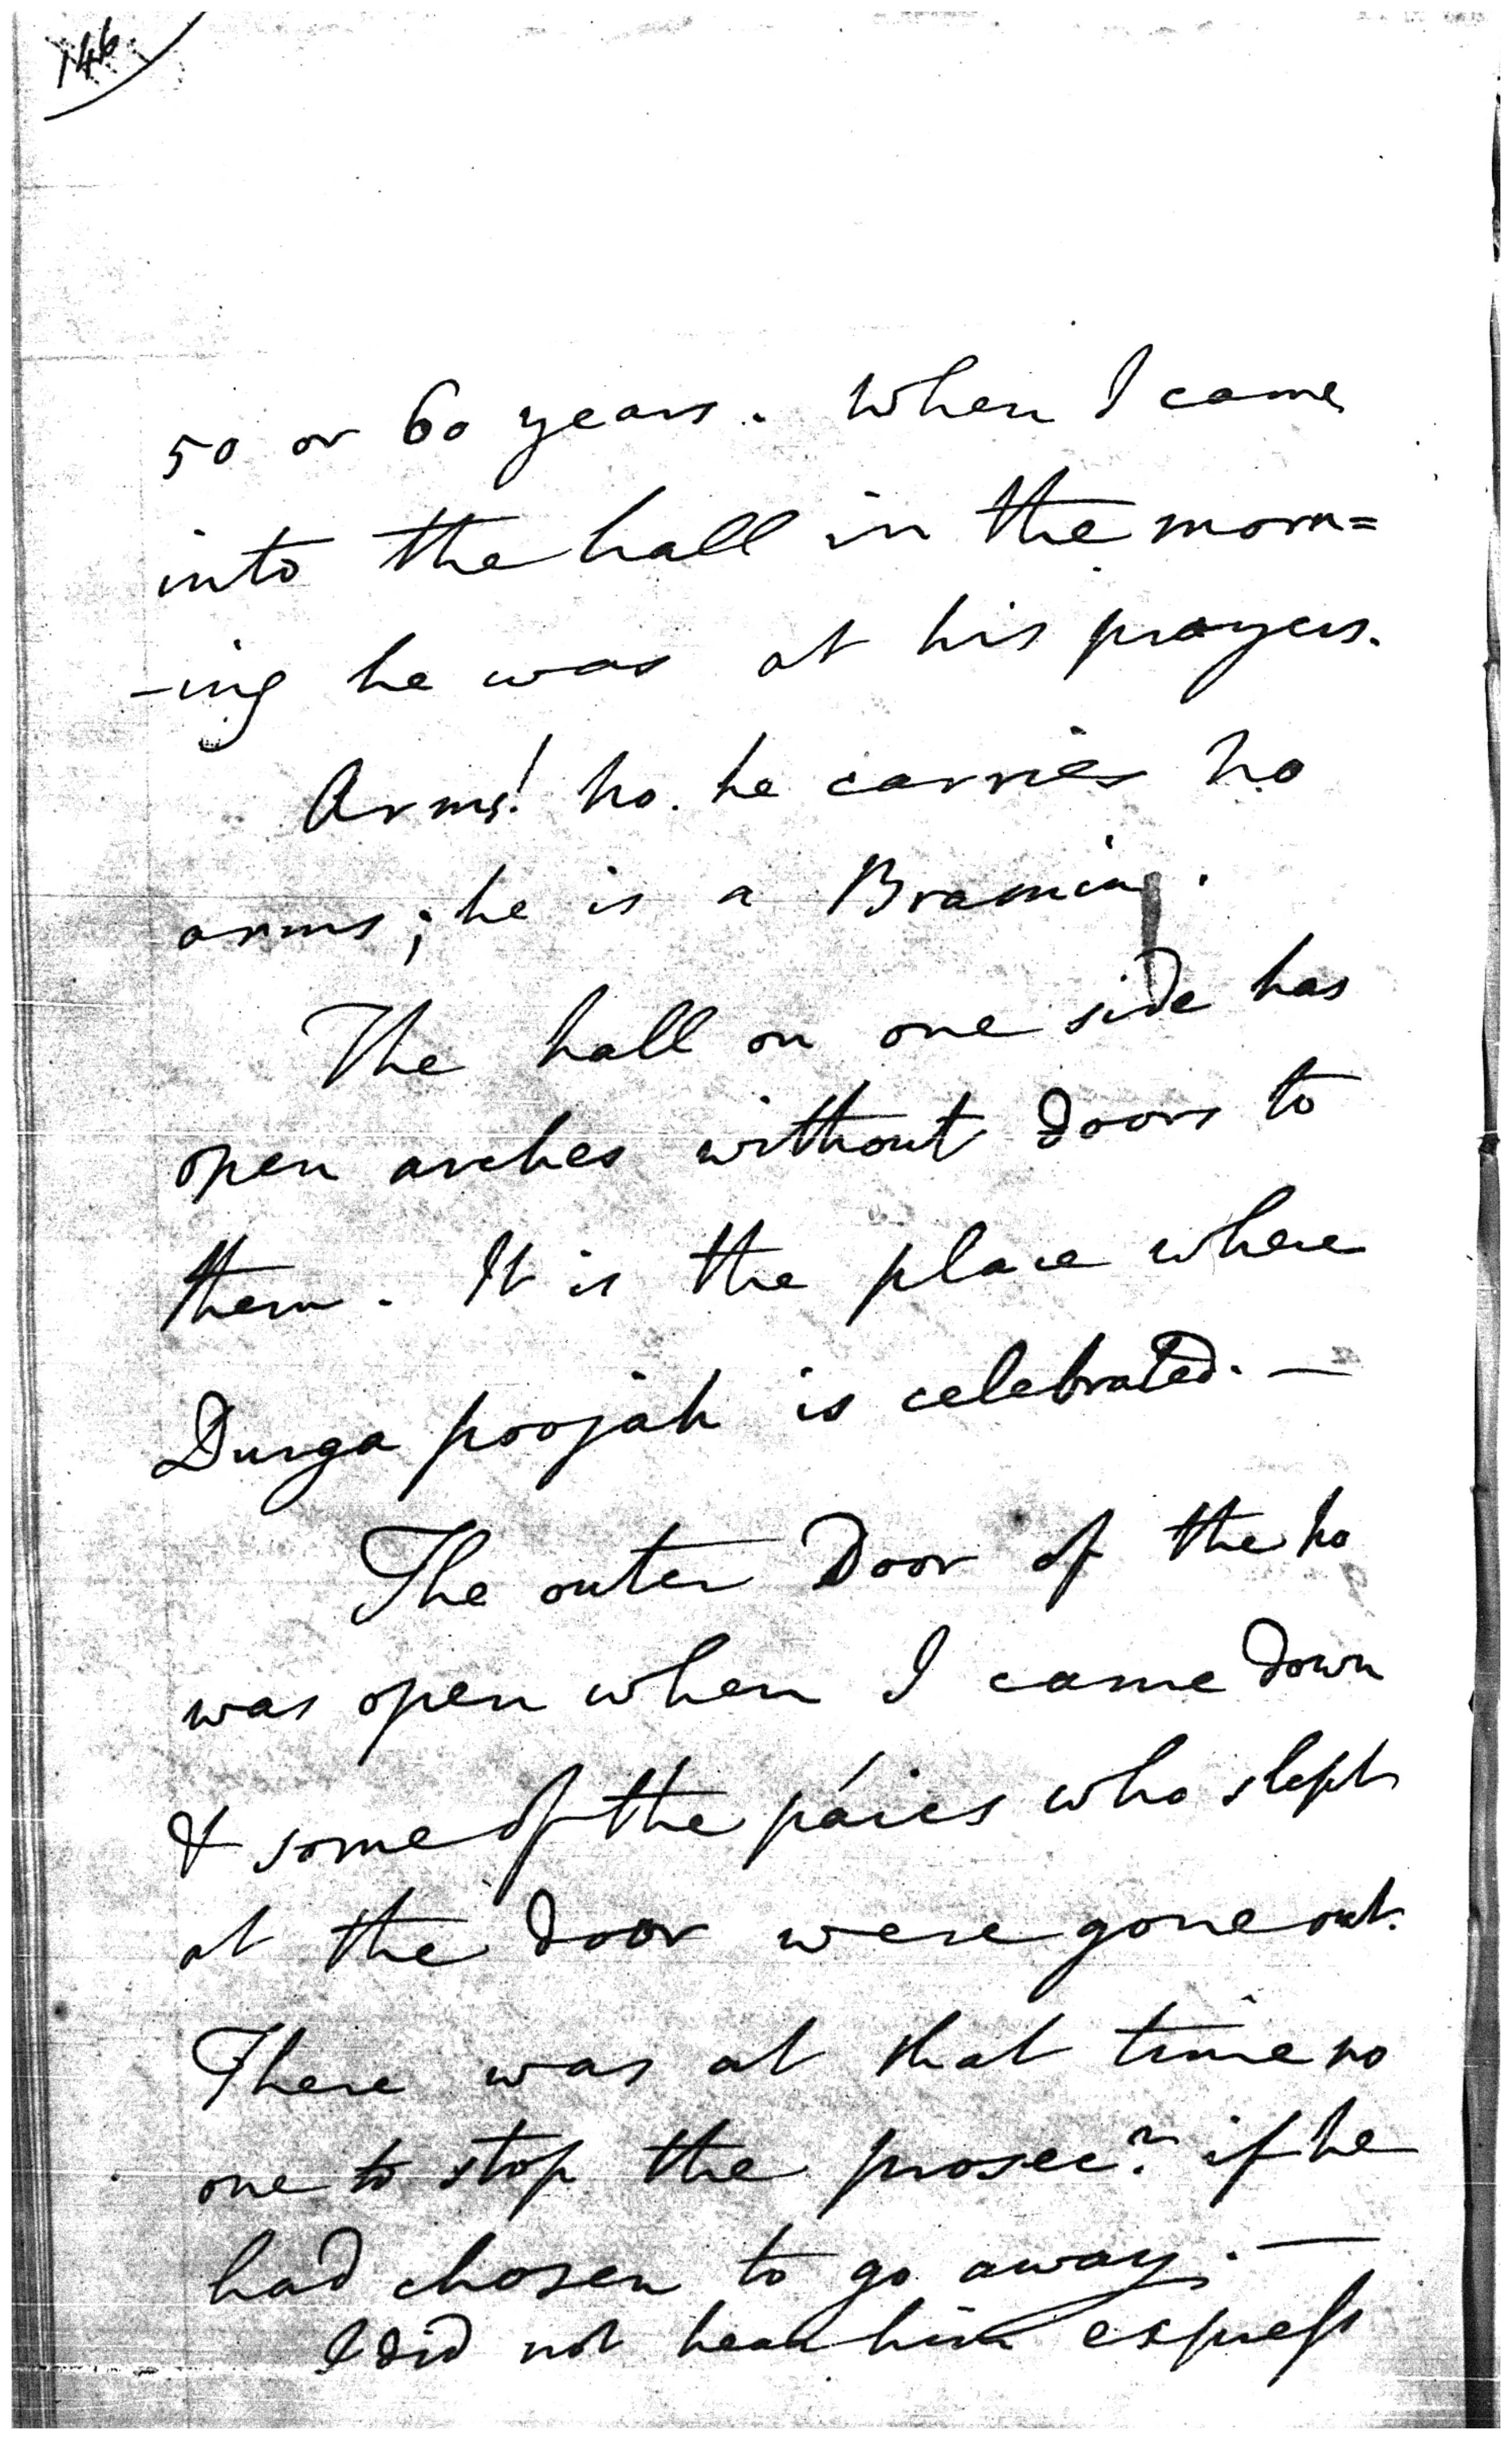 146
50 or 60 years. When I came
into the hall in the morn=
-ing he was at his prayers.
Arms! no. he carries no
arms; he is a Bramin.
The hall on one side has
open arches without doors to
them. It is the place where
Durga poojah is celebrated. —
The outer Door of the ho
was open when I came down
& some of the páics who slept
at the door were gone out.
There was at that time no
one to stop the prosecr. if he
had chosen to go away. —
I did not hear him express